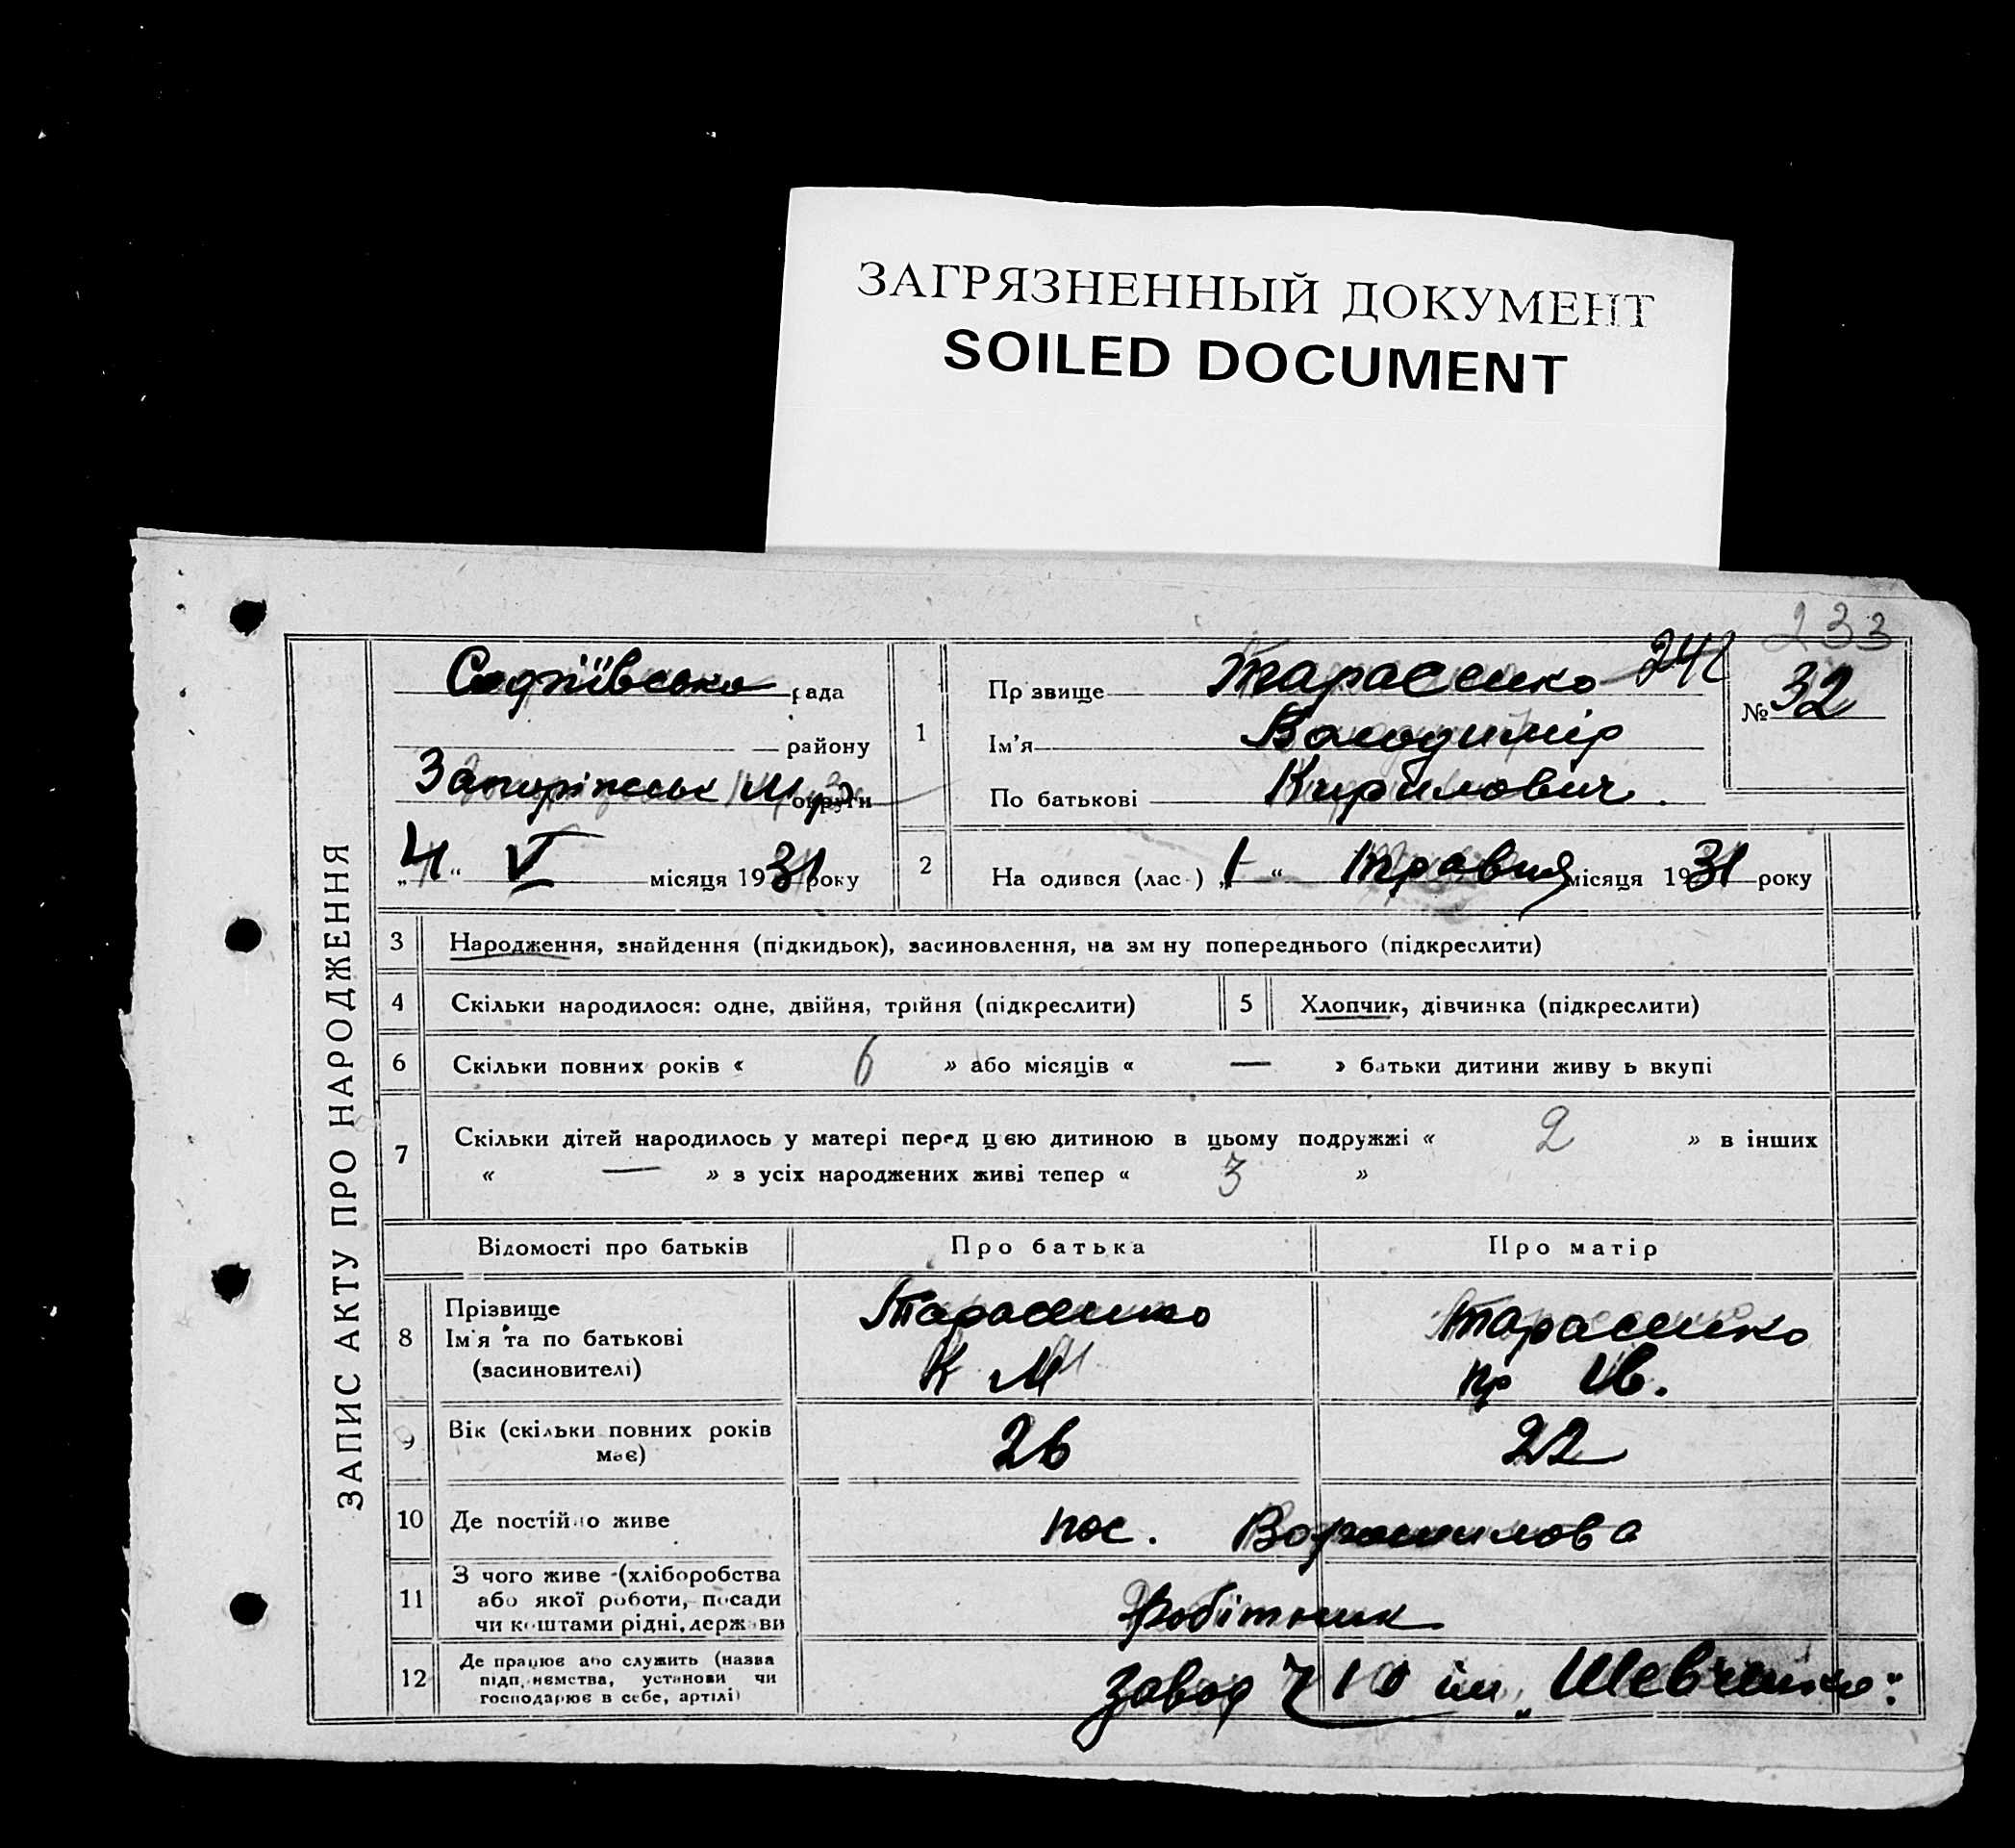 ЗАГРЯЗНЕННЫЙ ДОКУМЕНТ
SOILED DOCUMENT
233
242
ЗАПИС АКТУ ПРО НАРОДЖЕННЯ
Софіївська рада
району
Запоріжськ округи
„4“ VI місяця 1931 року
1
Прізвище Тарасенко
№ 32
Ім'я Володимір
По батькові Кирилович
2 На одився (лас ) „1“ травня місяця 1931 року
3 Народження, знайдення (підкидьок), засиновлення, на зм ну попереднього (підкреслити)
4 Скільки народилося: одне, двійня, трійня (підкреслити) 5 Хлопчик, дівчинка (підкреслити)
6 Скільки повних років « 6 » або місяців « — » батьки дитини живу ь вкупі
7 Скільки дітей народилось у матері перед цією дитиною в цьому подружжі « 2 » в інших
« — » з усіх народжених живі тепер « 3 »
Відомості про батьків Про батька Про матір
8 Прізвище
Ім'я та по батькові
(засиновителі)
Тарасенко
К М
Тарасенко
пр Ив.
9 Вік (скільки повних років
має)
26 22
10 Де постійно живе пос. Ворошилова
11 З чого живе (хліборобства
або якої роботи, посади
чи коштами рідні, держави
Робітник
12 Де працює або служить (назва
підприємства, установи чи
господарює в себе, артілі)
завод ім „Шевченко"